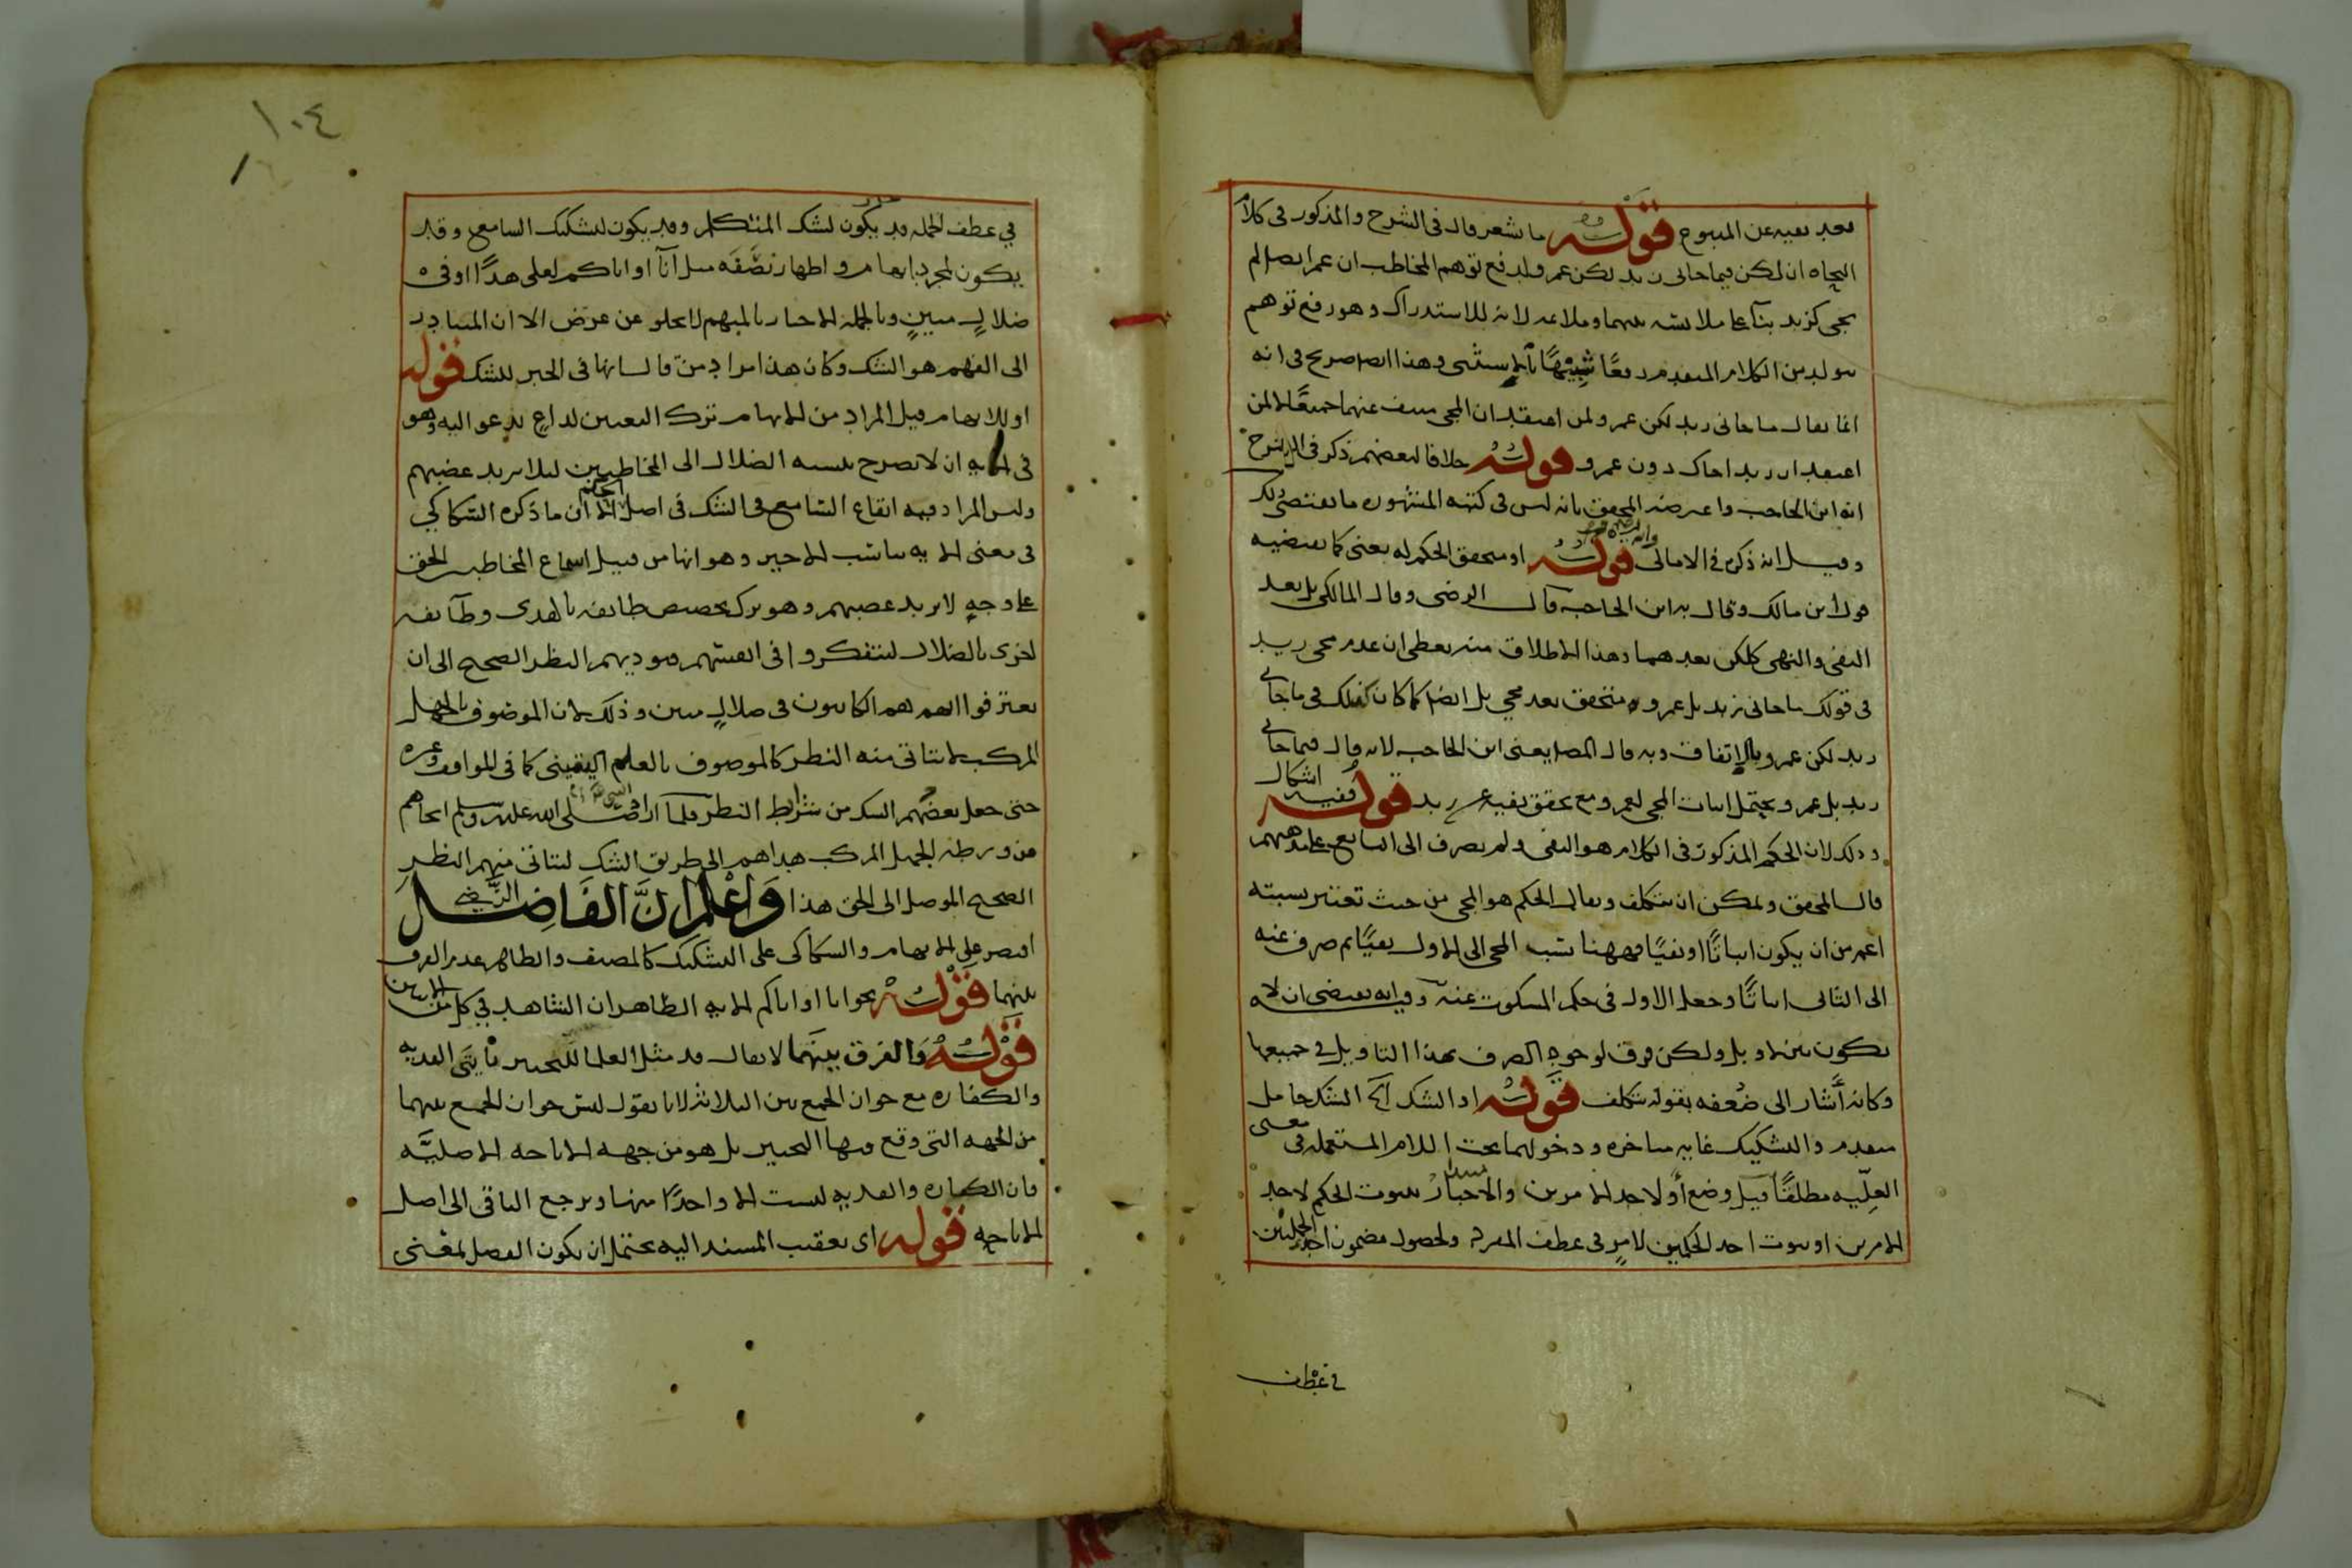 بعد نفيه عن المتبوع قوله ما يشعر قال فى الشرح والمذكور فى كلام
النحاه ان لكن فى ما جانى زيد لكن عمرو لدفع توهم المخاطب ان عمرا ايضا لم
يجى كزيد بنآ على ملابسه بينهما وملاءمه لانه للاستدراك وهو رفع توهم
يتولد من الكلام المتقدم دفعًا شبيهًا بالاستثنى وهذا ايضا صريح فى انه
انما يقال ما جانى زيد لكن عمرو لمن اعتقد ان المجى منتف عنهما جميعًا لا لمن
اعتقد ان زيدا جاك دون عمرو قوله خلافا لبعضهم ذكر فى الشرح
انه ابن الحاجب واعترضه المحقق بانه ليس فى كتبه المشهوره ما يقتضى ذلك
وقيل انه ذكره فى الامالى قوله او متحقق الحكم له يعنى كما يقتضيه
قول ابن مالك وقال به ابن الحاجب قال الرضى وقال المالكى بل بعد
النفى والنهى كلكن بعدهما وهذا الاطلاق منه يعطى ان عدم مجى زيد
فى قولك ما جانى زيد بل عمرو متحقق بعد مجى بل ايضا كما كان كذلك فى ما جانى
زيد لكن عمرو بالاتفاق وبه قال المص يعنى ابن الحاجب لانه قال فى ما جانى
زيد بل عمرو ويحتمل اثبات المجى لعمرو مع تحقق نفيه عن زيد قوله ففيه اشكال
وذلك لان الحكم المذكور فى الكلام هو النفى ولم يصرف الى التابع على مذهبهم
قال المحقق ويمكن ان يتكلف ويقال الحكم هو المجى من حيث تعتبر نسبته
اعم من ان يكون اثباتًا او نفيًا فههنا نسب المجى الى الاول نفيًا ثم صرف عنه
الى الثانى اثباتًا وجعل الاول فى حكم المسكوت عنه وفيه انه يقتضى ان لا
يكون بين لا وبل ولكن فرق لوجود الصرف بهذا التاويل فى جميعها
وكانه أشار الى ضُعفه بقوله يتكلف قوله او الشك آلخ الشك حامل
متقدم والتشكيك غايه متاخره ودخولهما تحت اللام المستعمله فى معنى
العلّيه مطلقًا قيل وضع أو لاحد الامرين والاخبار بثبوت الحكم لاحد
الامرين او ثبوت احد الحكمين لامرٍ فى عطف المفرد ولحصول مضمون احد الجملتين
فى عطف
١٠٤
في عطف الجمله قد يكون لشك المتكلم وقد يكون لتشكيك السامع وقد
يكون لمجرد ابهام واظهار نصَفَه مثل انآ او اياكم لعلى هدًا او فى
ضلالٍ مبينٍ وبالجمله الاخبار بالمبهم لا يخلو عن غرض الا ان المتبادر
الى الفهم هو الشك وكان هذا مراد من قال انها فى الخبر للشك قوله
او للابهام قيل المراد من الابهام ترك التعيين لداعٍ يدعو اليه وهو
فى الايه ان لا نصرح بنسبه الضلال الى المخاطبين ليلا يزيد غضبهم
وليس المراد فيه ايقاع السّامع فى الشك فى اصل الحكم الا ان ما ذكره السّكاكي
فى معنى الايه يناسب الاخير وهو انها من قبيل اسماع المخاطبين الحق
على وجهٍ لا يزيد غضبهم وهو ترك تخصيص طايفه بالهدى وطآيفه
اخرى بالضلال ليتفكروا فى انفسهم ويوديهم النظر الصحيح الى ان
يعترفوا انهم هم الكاينون فى ضلالٍ مبين وذلك لان الموصوف بالجهل
المركب لا يتاتى منه النظر كالموصوف بالعلم اليقينى كما فى المواقف وغيره
حتى جعل بعضهم الشك من شرايط النظر فلما اراد النبى صلى الله عليه وسلم انجاهم
من ورطه الجهل المركب هداهم الى طريق الشك ليتاتى منهم النظر
الصحيح الموصل الى الحق هذا وَاعْلم ان الفَاضِل الرَّضى
اقتصر على الابهام والسكاكى على التشكيك كالمصنف والظاهر عدم الفرق
بينهما قوله نحو انا او اياكم الايه الظاهر ان الشاهد في كل من الاثنين
قوله وَالفرق بينهما لا يقال قد مثل العلما للتخيير بآيتى الفديه
والكفاره مع جواز الجمع بين الثلاثه لانا نقول ليس جواز الجمع بينهما
من الجهه التى وقع فيها التخيير بل هو من جهه الاباحه الاصليَّه
فان الكفاره والفديه ليست الا واحدًا منها ويرجع الباقى الى اصل
الاباحه قوله اى تعقيب المسند اليه يحتمل ان يكون الفصل لمعنى